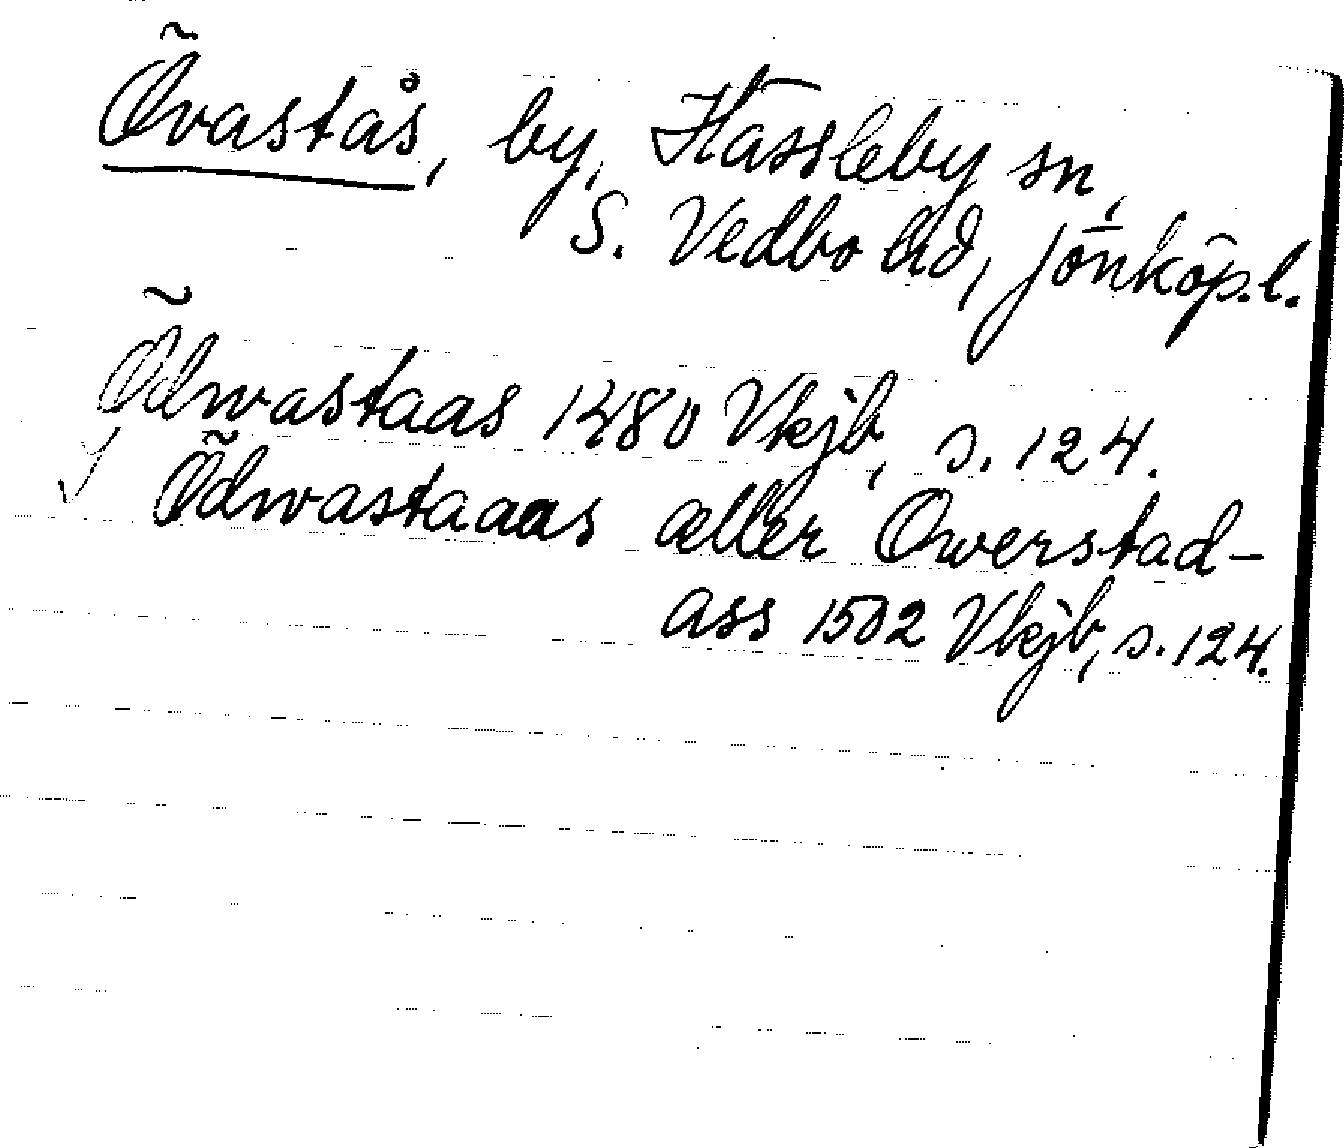 Övastås, by, Hässleby sn,
S. Vedbo hd, Jönköp.l.
Ödwastaas 1480 Vkjb, s. 124.
Ödwastaaas æller Owerstad-
ass 1502 Vkjb, s. 124.